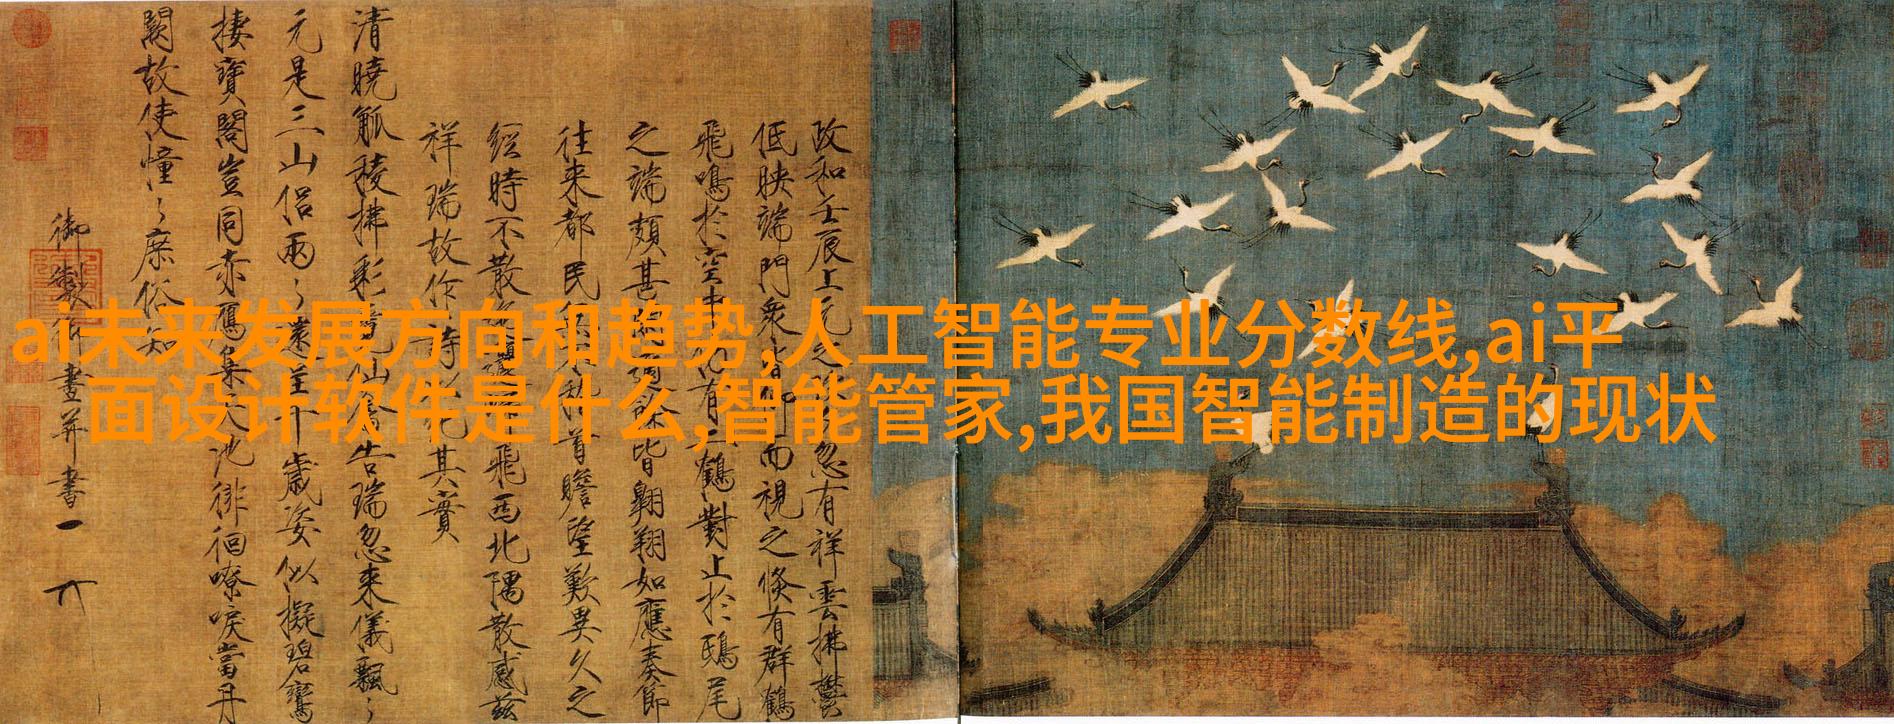 政和壬辰上元之次夕忽有祥雲拂鬱
低映端門衆皆仰而視之倐有群鶴
飛鳴於空中仍有二鶴對止於鴟尾
之端頗甚閑適餘皆翱翔如應奏節
往來都民無不稽首瞻望歎異久之
經時不散迤邐歸飛西北隅散感兹
祥瑞故作詩以紀其實
清曉觚稜拂彩霓仙禽告瑞忽來儀飄々
元是三山侶兩々還呈千歲姿似擬碧鸞
棲寶閣豈同赤鴈集天池徘徊嘹唳當丹
闕故使憧々庶俗知
御製御畫并書
ai未来发展方向和趋势,人工智能专业分数线,ai平
面设计软件是什么,智能管家,我国智能制造的现状